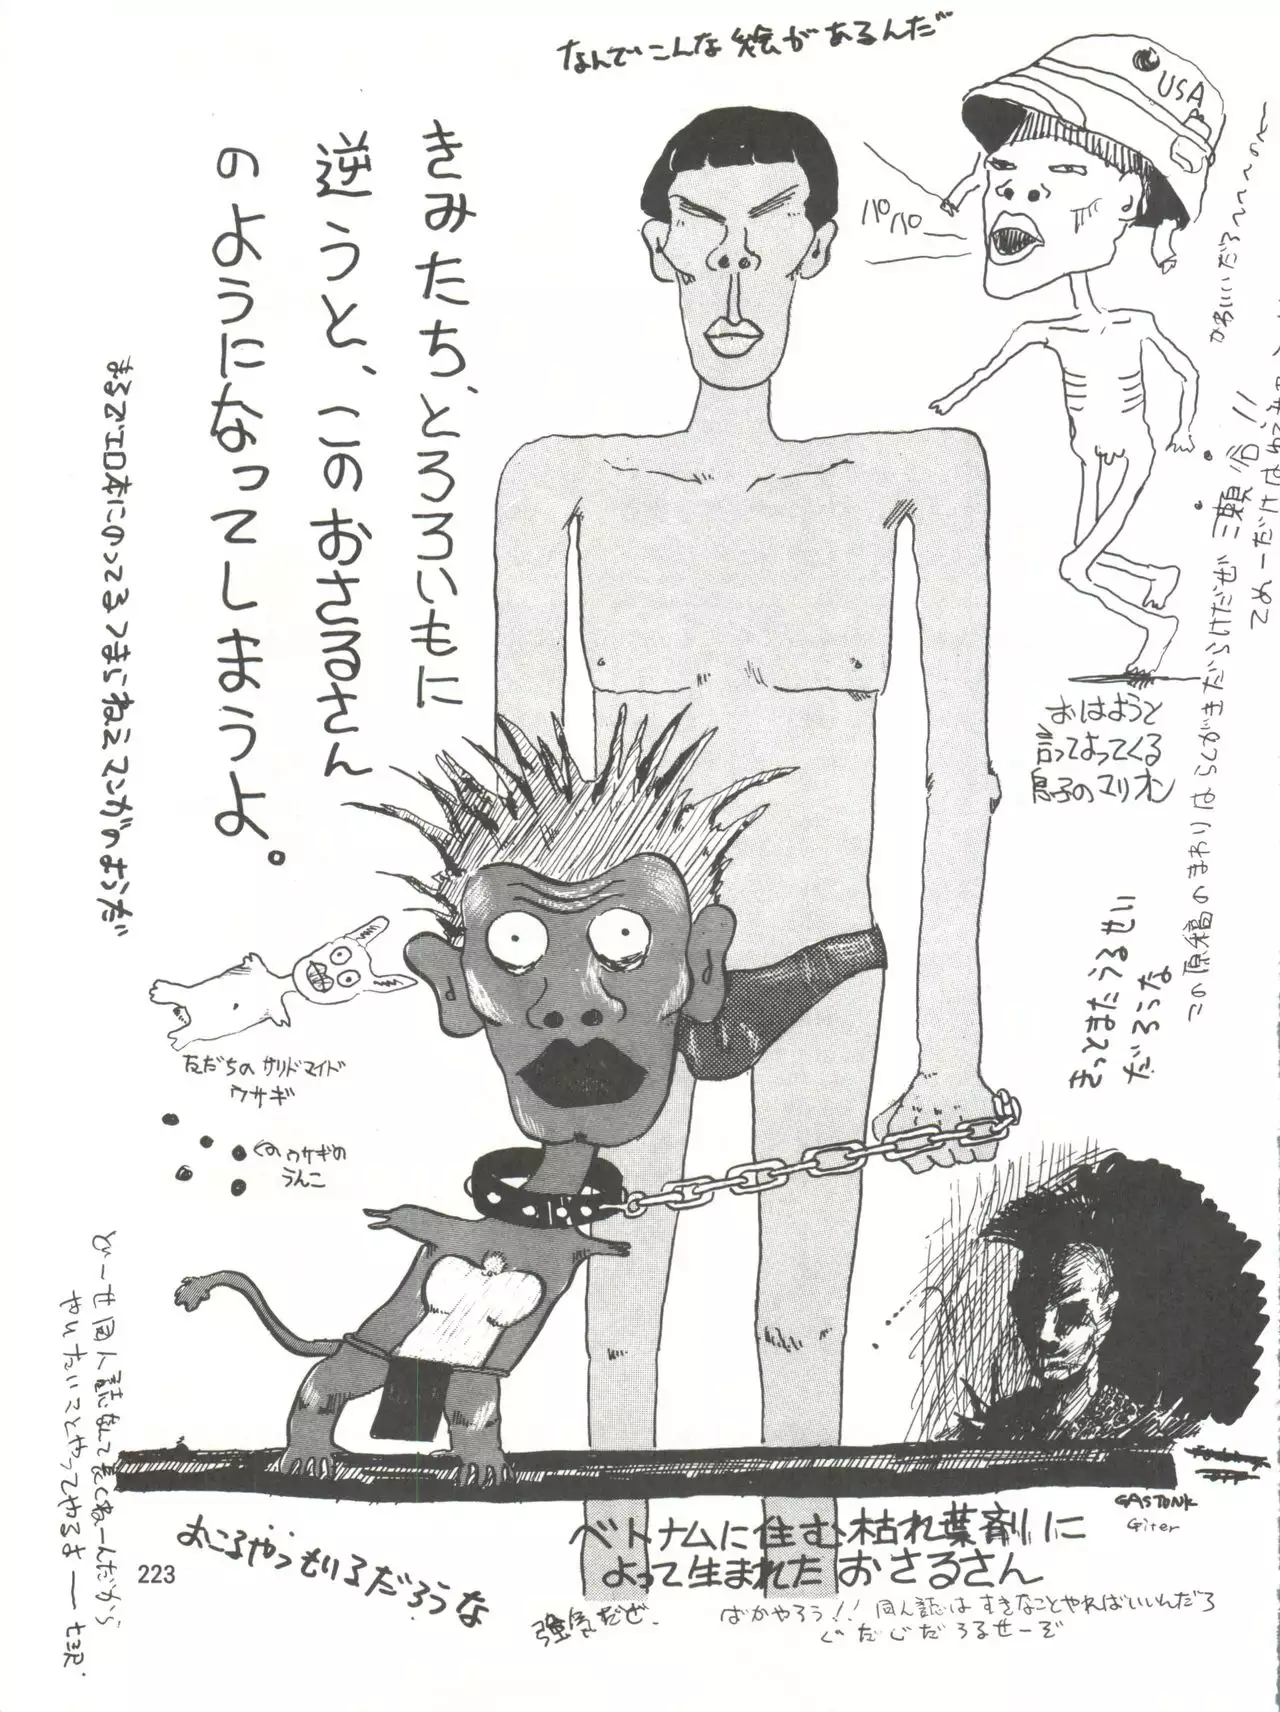 なんでこんな絵があるんだ
USA
パパ
かわいいだろ〜〜〜の〜
きみたち、とろろいもに
逆うと、このおさるさん
のようになってしまうよ。
まるでエロ本にのってるつまらねえマンガのようだ
おはようと
言ってよってくる
息子のマリオン
この原稿のまわりはらくがきだらけだぜ
きっとまたうるせい
だろうな
ただちの サリドマイド
ウサギ
そのウサギの
うんこ
どーせ同人誌なんて長くねーんだから
やりたいことやってやるさ
GASTONK
Giter
ベトナムに住む枯れ葉剤に
よって生まれた おさるさん
おこるやつもいるだろうな
強気だぜ.
ばかやろう!! 同人誌はすきなことやればいいんだろ
ぐだじだうるせーぞ
223